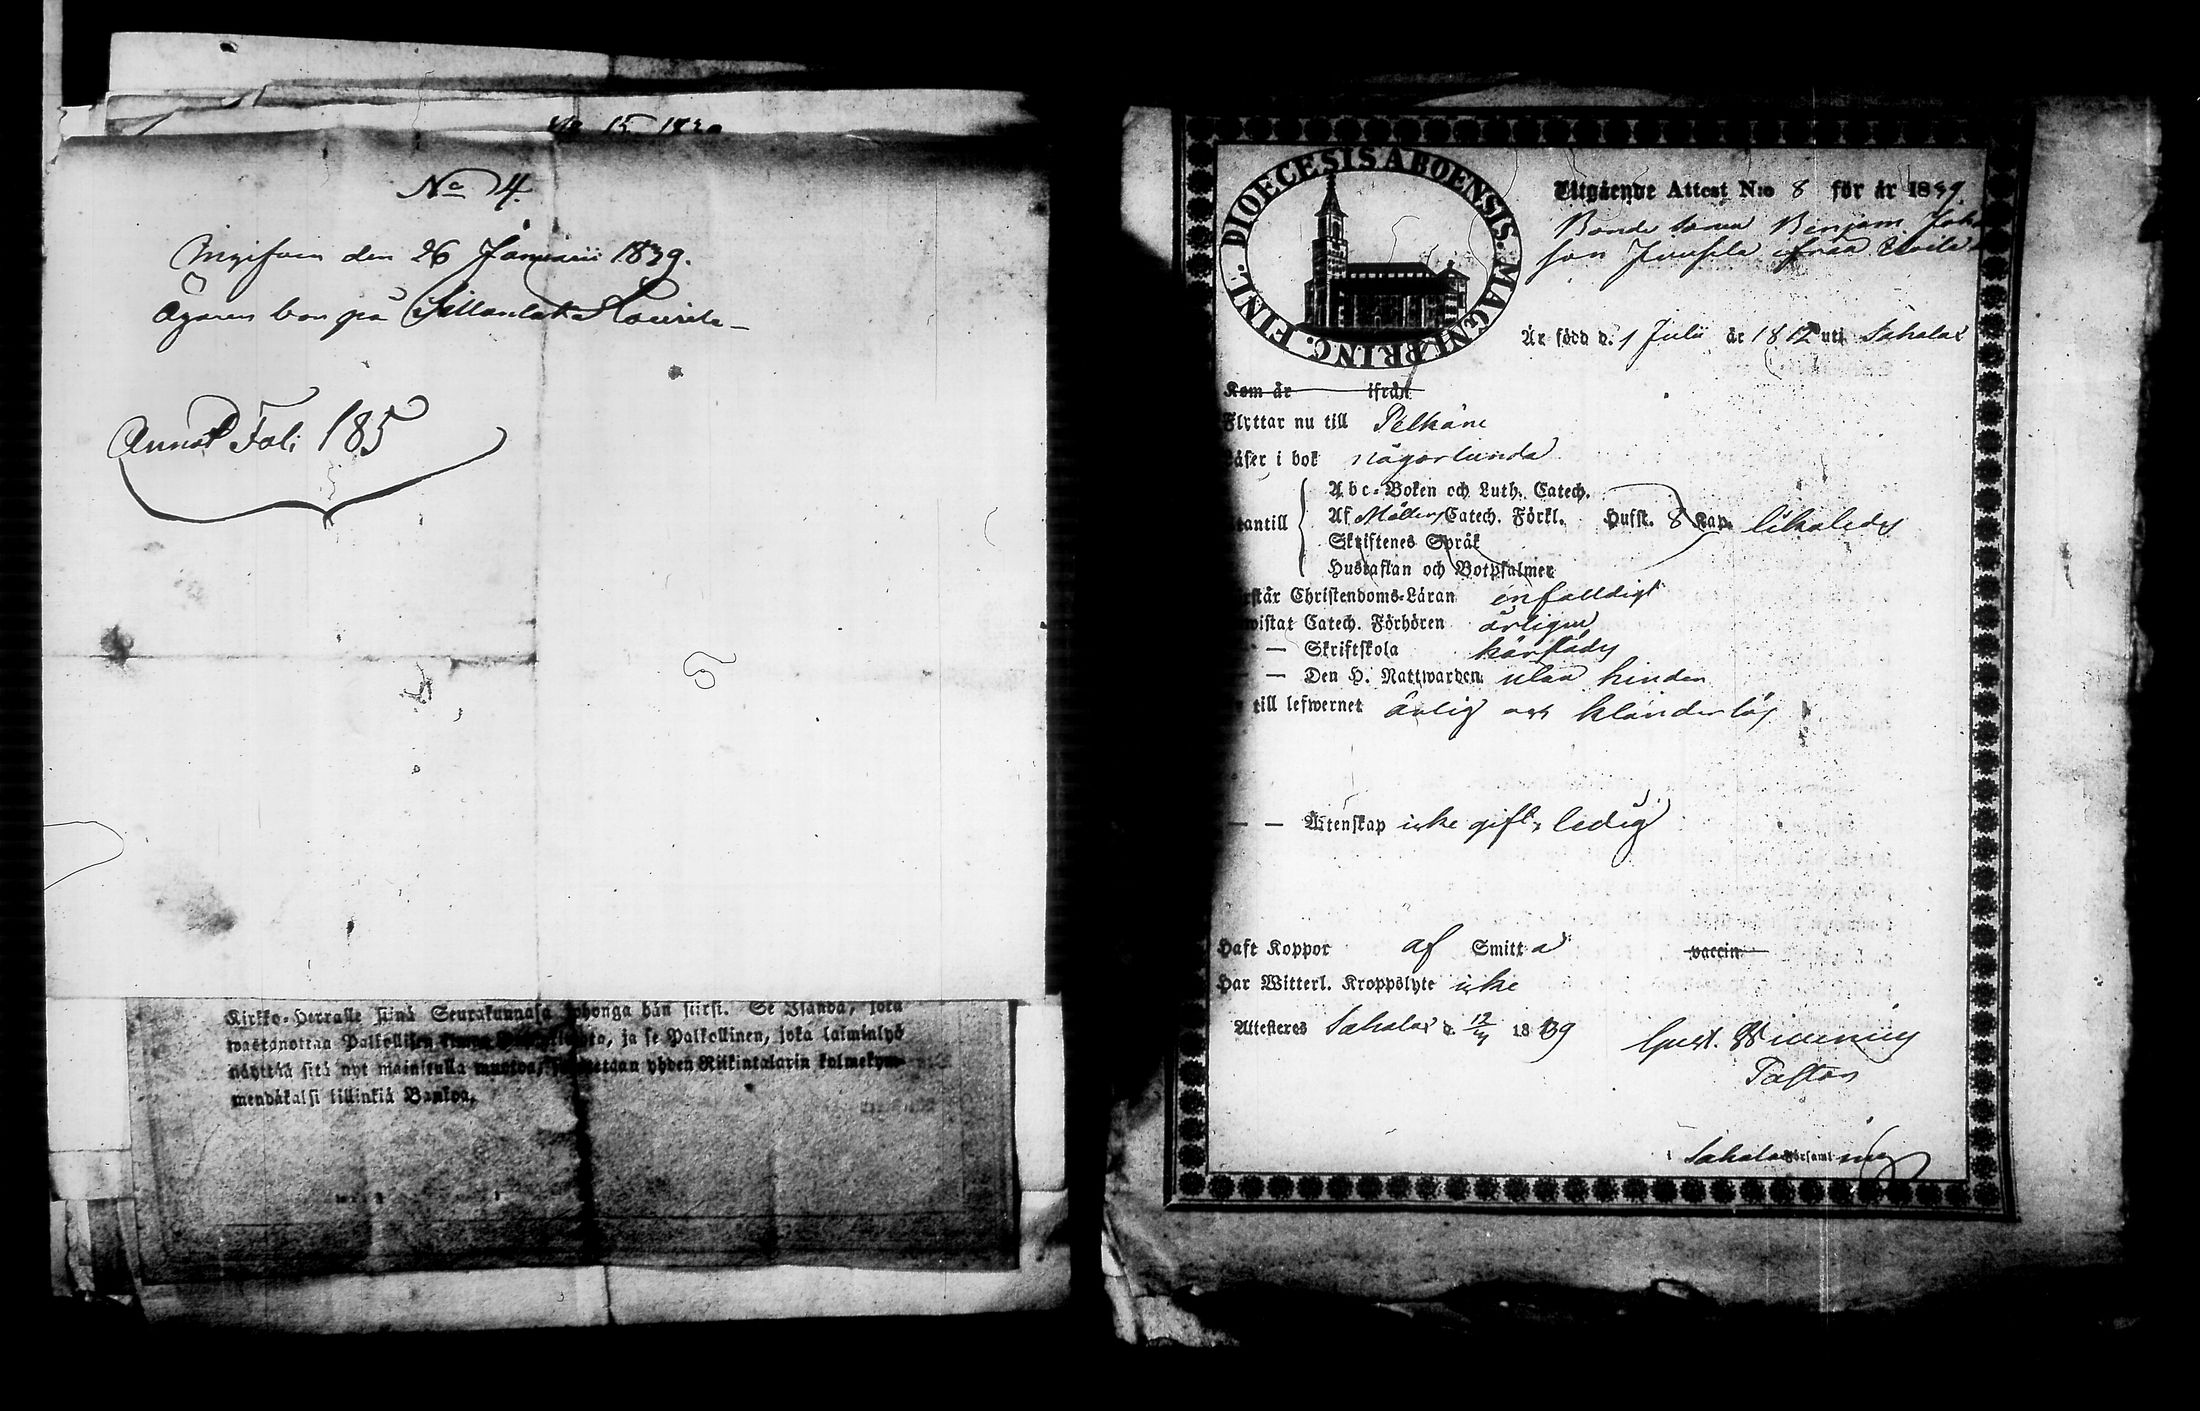 No 15 1839
No 4.
Ingifven den 26 Januarii 1839.
Ägaren bor på
Annot Fol: 185
Kirkko-Herralle siinä Seurakunnasa johonga hän siirsi. Se Isändä, joka
wastanottaa Palkollisen ja se Palkollinen, joka laiminlyö
näyttää sitä nyt mainitulla yhden Riikintalarin kolmekym-
mendäkaksi killinkiä Bankoa.
DIOECESIS ABOENSIS. MAGNI PRINC. FINL.
Utgående Attest N:o 8 för år 1839.
Bonde sonen Benjam. Joh
son Junsila ifrån
Är född d. 1 Julii år 1812 uti Sahalax
Kom år ifrån
Flyttar nu till Pelkäne
Läser i bok någorlunda
Utantill
Abc-Boken och Luth. Catech.
Af Möllers Catech. Förkl. Hufst. 8 Kap. likaledes
Skriftenes Språk
Hustaflan och Botpsalmer
Förstår Christendoms-Läran enfaldigt
Bewistat Catech. Förhören årligen
— — Skriftskola härstädes
— — Den H. Nattwarden utan hinder
Är till lefwernet ärlig och klanderlös
— — Äktenskap icke gift, ledig
Haft Koppor af Smitta vaccin
Har Witterl. Kroppslyte icke
Attesteres Sahalax d. 18 39
Gust. Wideniug
Pastor
i Sahalax Församling